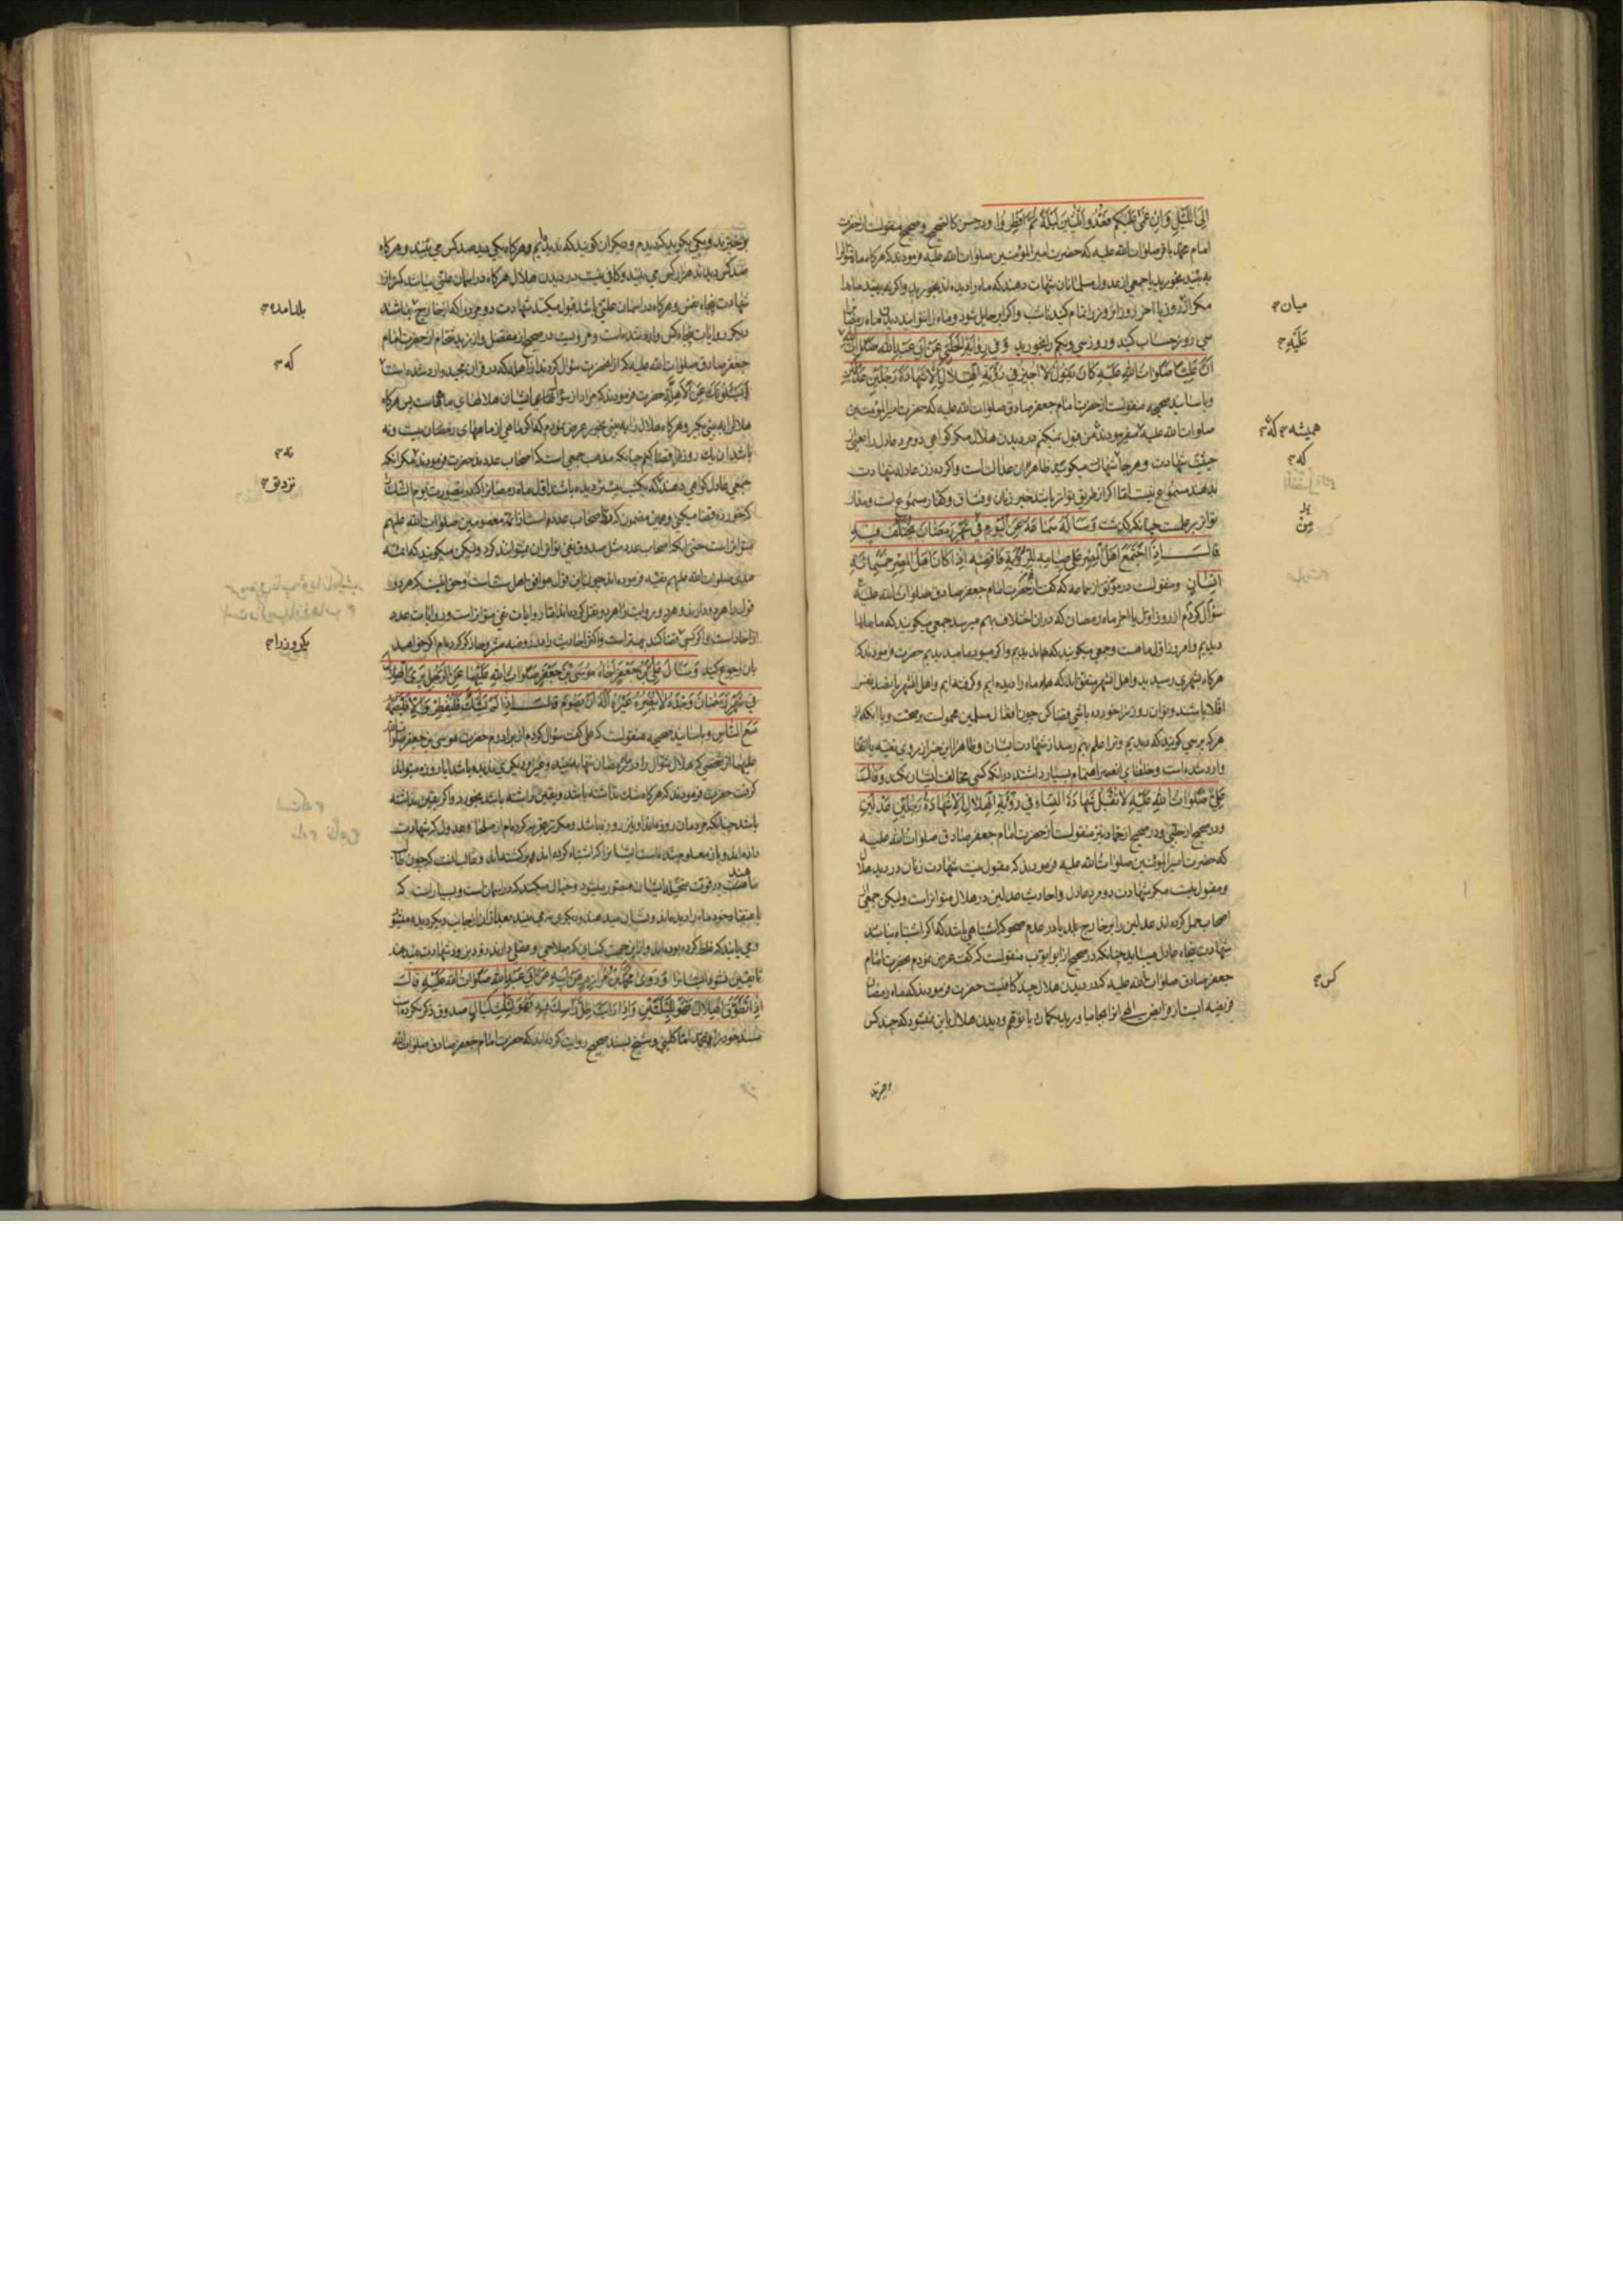 اِلَی اللَّیْلِ وَ اِنْ غُمَّ عَلَیْکُمْ فَعُدُّوا ثَلٰثِینَ لَیْلَةً ثُمَّ اَفْطِرُوا و در حسن کالصحیح و صحیح منقولست از حضرت
امام محمد باقر صلوات الله علیه که حضرت امیر المؤمنین صلوات الله علیه فرمودند که هرگاه ماه شوال را
به بینید بخورید یا جمعی از عدول مسلمانان شهادت دهند که ماه را دیده‌اند بخورید و اگر نه بینید ماه را
مکر از روز یا اخر روز
سی روز حساب کنید و روز سی و یکم را بخورید وَ فی رِوٰایَةِ الْحَلَبِیِّ عَنْ اَبی عَبْدِ اللّٰهِ صَلَوٰاتُ اللّٰهِ
اَنَّ عَلِیًّا صَلَوٰاتُ اللّٰهِ عَلَیْهِ کٰانَ یَقُولُ لٰا اُجیزُ فی رُؤْیَةِ الْهِلٰالِ اِلّٰا شَهٰادَةَ رَجُلَیْنِ عَدْلَیْنِ
و باسانید صحیحه منقولست از حضرت امام جعفر صادق صلوات الله علیه که حضرت امیر المؤمنین
صلوات الله علیه میفرمودند من قبول نمیکنم در دیدن هلال مکر کواهی دو مرد عادل را یعنی
شهادت و هر جا شهادت میکویند ظاهرش عدالت است و اکر ده زن عادله شهادت
بدهند مسموع نیست اما اکر از طریق تواتر باشد خبر زنان و فساق و کفار مسموع است و مدار
تواتر بر علمست چنانکه گذشت وَ سَأَلَهُ سَمٰاعَةُ عَنِ الْیَوْمِ فی شَهْرِ رَمَضٰانَ یُخْتَلَفُ فیهِ
قٰالَ اِذَا اجْتَمَعَ اَهْلُ الْمِصْرِ عَلیٰ صِیٰامِهِ لِلرُّؤْیَةِ فَاقْضِهِ اِذٰا کٰانَ اَهْلُ الْمِصْرِ خَمْسَمِائَةِ
اِنْسٰانٍ و منقولست در موثق از سماعه که گفت از حضرت امام جعفر صادق صلوات الله علیه
سؤال کردم از روز اول یا اخر ماه رمضان که در ان اختلاف بهم میرسد جمعی میکویند که ما ماه را
دیدیم و امروز اول ماهست و جمعی میکویند که ما ندیدیم و اکر میبود ما میدیدیم حضرت فرمودند که
هرکاه شهری رسیدید و اهل انشهر متفق‌اند که ماه را دیده‌ایم و
اقلا باشند و تو ان روز را خورده باشی قضا کن چون افعال مسلمین محمولست بر صحت و یا انکه از
هر که پرسی کویند که دیدیم و ترا علم بهم رسد از شهادت ایشان و ظاهرا این خبر از روی تقیه یا اتقا
وارد شده است و خلفای انعصر اهتمام بسیار داشتند در انکه کسی مخالفت ایشان نکند وَ قٰالَ
عَلِیٌّ صَلَوٰاتُ اللّٰهِ عَلَیْهِ لٰا تُقْبَلُ شَهٰادَةُ النِّسٰاءِ فی رُؤْیَةِ الْهِلٰالِ اِلّٰا شَهٰادَةُ رَجُلَیْنِ عَدْلَیْنِ
و در صحیح از حلبی و در صحیح از حماد نیز منقولست از حضرت امام جعفر صادق صلوات الله علیه
که حضرت امیر المؤمنین صلوات الله علیه فرمودند که مقبول نیست شهادت زنان در دیدن هلال
و مقبول نیست مکر شهادت دو مرد عادل و احادیث عدلین در هلال متواتر است ولیکن جمعی
اصحاب حمل کرده‌اند عدلین را بر خارج بلد یا در عدم صحو که اشتباهی باشد که اکر اشتباه نباشد
شهادت پنجاه عادل میباید چنانکه در صحیح از ابو ایوب منقولست که گفت عرض نمودم بحضرت امام
جعفر صادق صلوات الله علیه که در دیدن هلال چند کافیست حضرت فرمودند که ماه رمضان
فریضه ایست از فرایض الهی انرا بجا میاورید بکمان یا توهم و دیدن هلال باین نمیشود که چند کس
میان
عَلَیْهِ
همیشه که
که
مِنْ
کس
برخیزند و یکی بکوید که دیدم و دیکران کویند که ندیدیم و هرکاه یکی دید صد کس می بینند و هرکاه
صد کس دیدند هزار کس می بینند و کافی نیست در دیدن هلال هرکاه در اسمان علتی نباشد کمتر از
شهادت پنجاه نفس و هرکاه در اسمان علتی باشد قبول میکنند شهادت دو مرد را که از خارج باشند
دیکر روایات پنجاه کس وارد شده است و مرویست در صحیح از مفضل و از زید شحام از حضرت امام
جعفر صادق صلوات الله علیه که از انحضرت سؤال کردند از اهله که در قران مجید وارد شده است
یَسْئَلُونَکَ عَنِ الْاَهِلَّةِ حضرت فرمودند که مراد از سؤالهای ایشان هلالهای ماههاست پس هرکاه
هلال را به بینی بگیر و هرکاه هلال را به بینی بخور عرض نمودم که اکر ماهی از ماههای رمضان بیست و نه
باشد ان یک روز را قضا کنم چنانکه مذهب جمعی است که اصحاب عددند حضرت فرمودند نه مکر انکه
جمعی عادل کواهی دهند که یکشب پیشتر دیده باشند اول ماه رمضان را که در اینصورت یوم الشک
که خورده قضا میکنی و همین مضمون که رد اصحاب عدد است از ائمه معصومین صلوات الله علیهم
متواتر است حتی انکه اصحاب عدد مثل صدوق نفی تواتر ان نمیتوانند کرد ولیکن میکویند که ائمه
هدی صلوات الله علیهم تقیه فرموده‌اند چون این قول موافق اهل سنت است و حق انست که هر دو
از احاد است و اکر کسی قضا کند بهتر است و اکثر احادیث را در روضه مشروحا ذکر کرده‌ام اکر خواهید
بان رجوع کنید وَ سَأَلَ عَلِیُّ بْنُ جَعْفَرٍ اَخٰاهُ مُوسَی بْنَ جَعْفَرٍ صَلَوٰاتُ اللّٰهِ عَلَیْهِمٰا عَنِ الرَّجُلِ یَرَی الْهِلٰالَ
فی شَهْرِ رَمَضٰانَ وَحْدَهُ لٰا یُبْصِرُهُ غَیْرُهُ اَلَهُ اَنْ یَصُومَ قٰالَ اِذٰا لَمْ یَشُکَّ فَلْیُفْطِرْ وَ اِلّٰا فَلْیَصُمْهُ
مَعَ النّٰاسِ و باسانید صحیحه منقولست که علی گفت سؤال کردم از برادرم حضرت موسی بن جعفر صلوات الله
علیهما از شخصی که هلال شوال را در ماه رمضان تنها به بیند و غیر او دیکری ندیده باشد ایا روزه میتواند
گرفت حضرت فرمودند که هرکاه شک نداشته باشد و یقین داشته باشد بخورد و اکر یقین نداشته
باشد چنانکه مردمان روزه‌اند او نیز روزه باشد و مکرر تجربه کرده‌ام از صلحا و عدول که شهادت
داده‌اند و باز معلوم شده است ایشانرا که اشتباه کرده‌اند
در قوت متخیله ایشان مصور میشود و خیال میکنند که در اسمان است و بسیار است که
باعتقاد خود ماه را دیده‌اند و نشان میدهند و دیکری نمی بیند بعد از ان از جانب دیکر دیده میشود
و می یابند که غلط کرده بوده‌اند و از این جهت کسانی که صلاحی و عقلی دارند زود بزود شهادت نمیدهند
تا یقین نشود ایشانرا وَ رَوٰی مُحَمَّدُ بْنُ مُرٰازِمٍ عَنْ اَبیهِ عَنْ اَبی عَبْدِ اللّٰهِ صَلَوٰاتُ اللّٰهِ عَلَیْهِ قٰالَ
اِذٰا تَطَوَّقَ الْهِلٰالُ فَهُوَ لِلَیْلَتَیْنِ وَ اِذٰا رَاَیْتَ ظِلَّ رَأْسِکَ فیهِ فَهُوَ لِثَلٰثِ لَیٰالٍ صدوق ذکر نکرده است
سند خود را بمحمد اما کلینی و شیخ بسند صحیح روایت کرده‌اند که حضرت امام جعفر صادق صلوات الله
بلد امده
که
نه
یکروز را